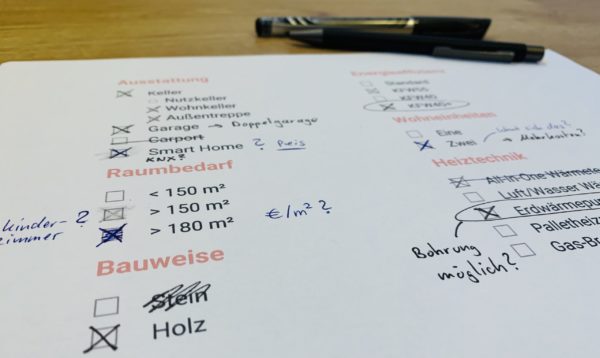 Ausstattung
Keller
Nutzkeller
Wohnkeller
Außentreppe
Garage → Doppelgarage
Carport
Smart Home ? Preis
KNX?
Raumbedarf
< 150 m²
> 150 m²
> 180 m²
kinder-
zimmer ?
€/m² ?
Bauweise
Stein
Holz
Energieeffizienz
Standard
KFW55
KFW40
KFW40+
Wohneinheiten
Eine
Zwei
lohnt sich das?
→ Mehrkosten?
Heiztechnik
All-in-One Wärme
Luft/Wasser Wä
Erdwärmepu
Palletheiz
Gas-Br
Bohrung
möglich?